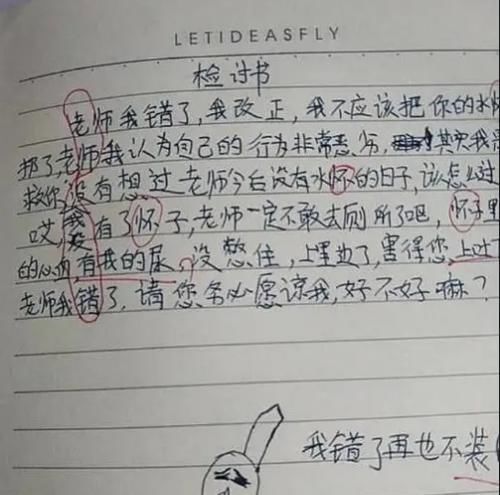 LETIDEASFLY
检讨书
老师我错了,我改正,我不应该把你的水怀
扔了,老师我认为自己的行为非常恶劣,其实我
救你,没有想过老师今后没有水怀的日子,该怎么过
哎,我没有了怀子,老师一定不敢去厕所了吧,怀子里
的心血,有我的尿,没憋住,上里边了,害得您上吐
老师我错了,请您务必愿谅我,好不好嘛?
我错了再也不装